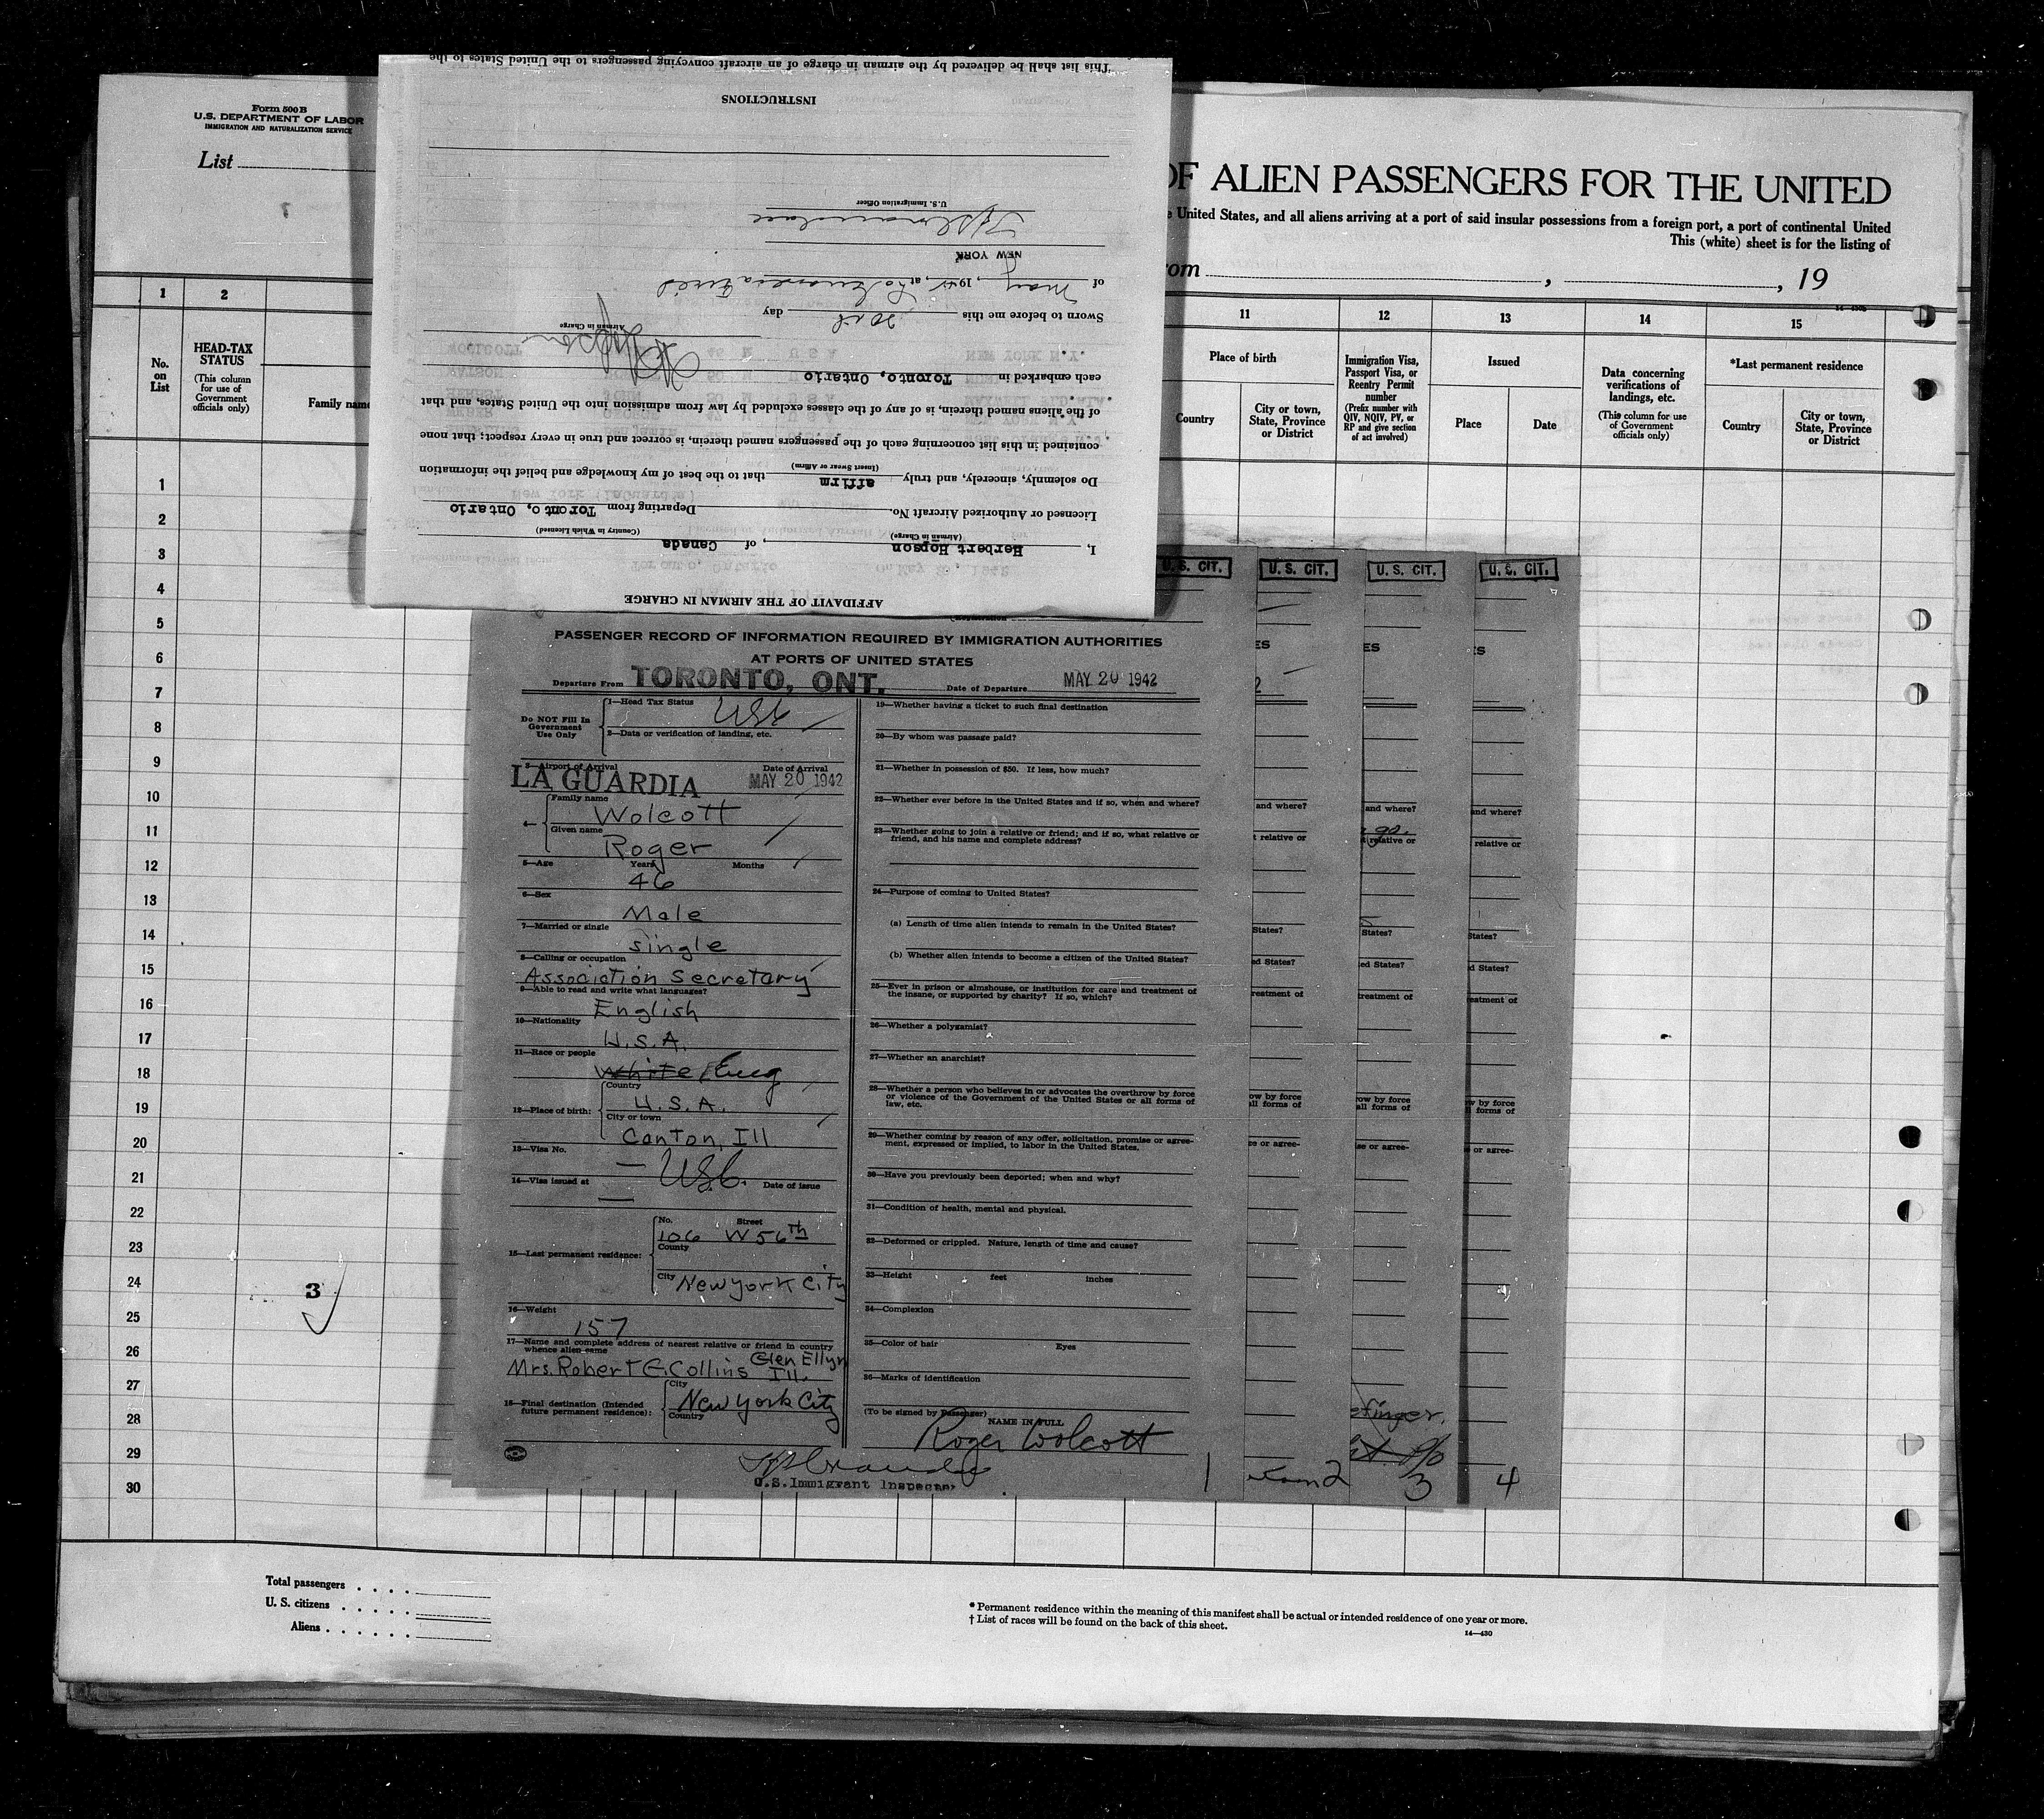 Form 500 B
U.S. DEPARTMENT OF LABOR
IMMIGRATION AND NATURALIZATION SERVICE
List
OF ALIEN PASSENGERS FOR THE UNITED
United States, and all aliens arriving at a port of said insular possessions from a foreign port, a port of continental United
This (white) sheet is for the listing of
om , , 19
1 2 11 12 13 14 15
No. on List
HEAD-TAX STATUS
(This column for use of Government officials only)
Family name
Place of birth
Country
City or town, State, Province or District
Immigration Visa, Passport Visa, or Reentry Permit number
(Prefix number with QIV, NQIV, PV, or RP and give section of act involved)
Issued
Place
Date
Data concerning verifications of landings, etc.
(This column for use of Government officials only)
*Last permanent residence
Country
City or town, State, Province or District
1
2
3
4
5
6
7
8
9
10
11
12
13
14
15
16
17
18
19
20
21
22
23
24
25
26
27
28
29
30
3
AFFIDAVIT OF THE AIRMAN IN CHARGE
I, Herbert Hopson, of Canada
(Airman in Charge) (Country in Which Licensed)
Licensed or Authorized Aircraft No. Departing from Toronto, Ontario
Do solemnly, sincerely, and truly affirm that to the best of my knowledge and belief the information
(Insert Swear or Affirm)
contained in this list concerning each of the passengers named therein, is correct and true in every respect; that none
of the aliens named therein, is of any of the classes excluded by law from admission into the United States, and that
each embarked in Toronto, Ontario
Airman in Charge
Sworn to before me this 20th day
of May, 194 , at
NEW YORK
U.S. Immigration Officer
INSTRUCTIONS
This list shall be delivered by the airman in charge of an aircraft conveying passengers to the United States to the
U.S. CIT. U.S. CIT. U.S. CIT. U.S. CIT.
PASSENGER RECORD OF INFORMATION REQUIRED BY IMMIGRATION AUTHORITIES
AT PORTS OF UNITED STATES
Departure From TORONTO, ONT. Date of Departure MAY 20 1942
Do NOT Fill In Government Use Only
1—Head Tax Status USC
2—Data or verification of landing, etc.
3—Airport of Arrival Date of Arrival
LA GUARDIA MAY 20 1942
4— Family name
Wolcott
Given name
Roger
5—Age Years Months
46
6—Sex
Male
7—Married or single
single
8—Calling or occupation
Association Secretary
9—Able to read and write what languages?
English
10—Nationality
U.S.A.
11—Race or people
White / Eng
12—Place of birth: Country
U.S.A.
City or town
Canton, Ill
13—Visa No.
— USC.
14—Visa issued at Date of issue
—
15—Last permanent residence: No. Street
106 W 56th
County
City New York City
16—Weight
157
17—Name and complete address of nearest relative or friend in country
whence alien came
Mrs. Robert E. Collins Glen Ellyn Ill.
18—Final destination (Intended future permanent residence): City
New York City
Country
19—Whether having a ticket to such final destination
20—By whom was passage paid?
21—Whether in possession of $50. If less, how much?
22—Whether ever before in the United States and if so, when and where?
23—Whether going to join a relative or friend; and if so, what relative or
friend, and his name and complete address?
24—Purpose of coming to United States?
(a) Length of time alien intends to remain in the United States?
(b) Whether alien intends to become a citizen of the United States?
25—Ever in prison or almshouse, or institution for care and treatment of
the insane, or supported by charity? If so, which?
26—Whether a polygamist?
27—Whether an anarchist?
28—Whether a person who believes in or advocates the overthrow by force
or violence of the Government of the United States or all forms of
law, etc.
29—Whether coming by reason of any offer, solicitation, promise or agree-
ment, expressed or implied, to labor in the United States.
30—Have you previously been deported; when and why?
31—Condition of health, mental and physical.
32—Deformed or crippled. Nature, length of time and cause?
33—Height feet inches
34—Complexion
35—Color of hair Eyes
36—Marks of identification
(To be signed by Passenger)
NAME IN FULL
Roger Wolcott
U.S. Immigrant Inspector
1 2 3 4
Total passengers
U. S. citizens
Aliens
* Permanent residence within the meaning of this manifest shall be actual or intended residence of one year or more.
† List of races will be found on the back of this sheet.
14—430